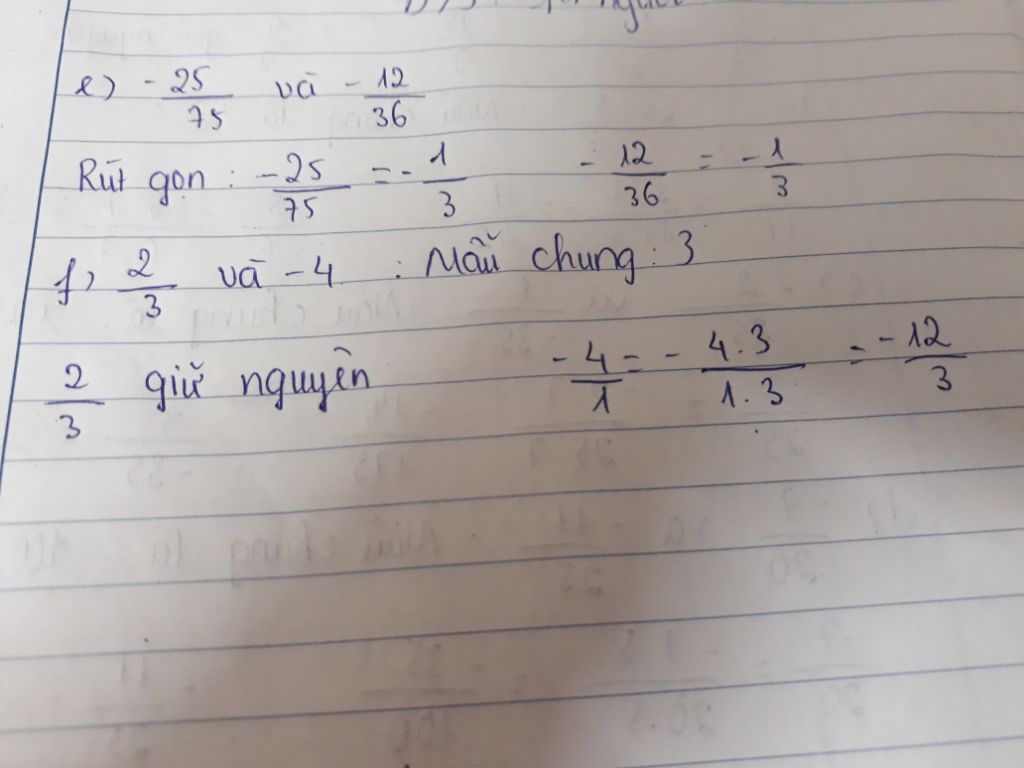 e) -25/75 và -12/36
Rút gọn : -25/75 = -1/3 -12/36 = -1/3
f) 2/3 và -4 : Mẫu chung : 3
2/3 giữ nguyên -4/1 = -4.3/1.3 = -12/3